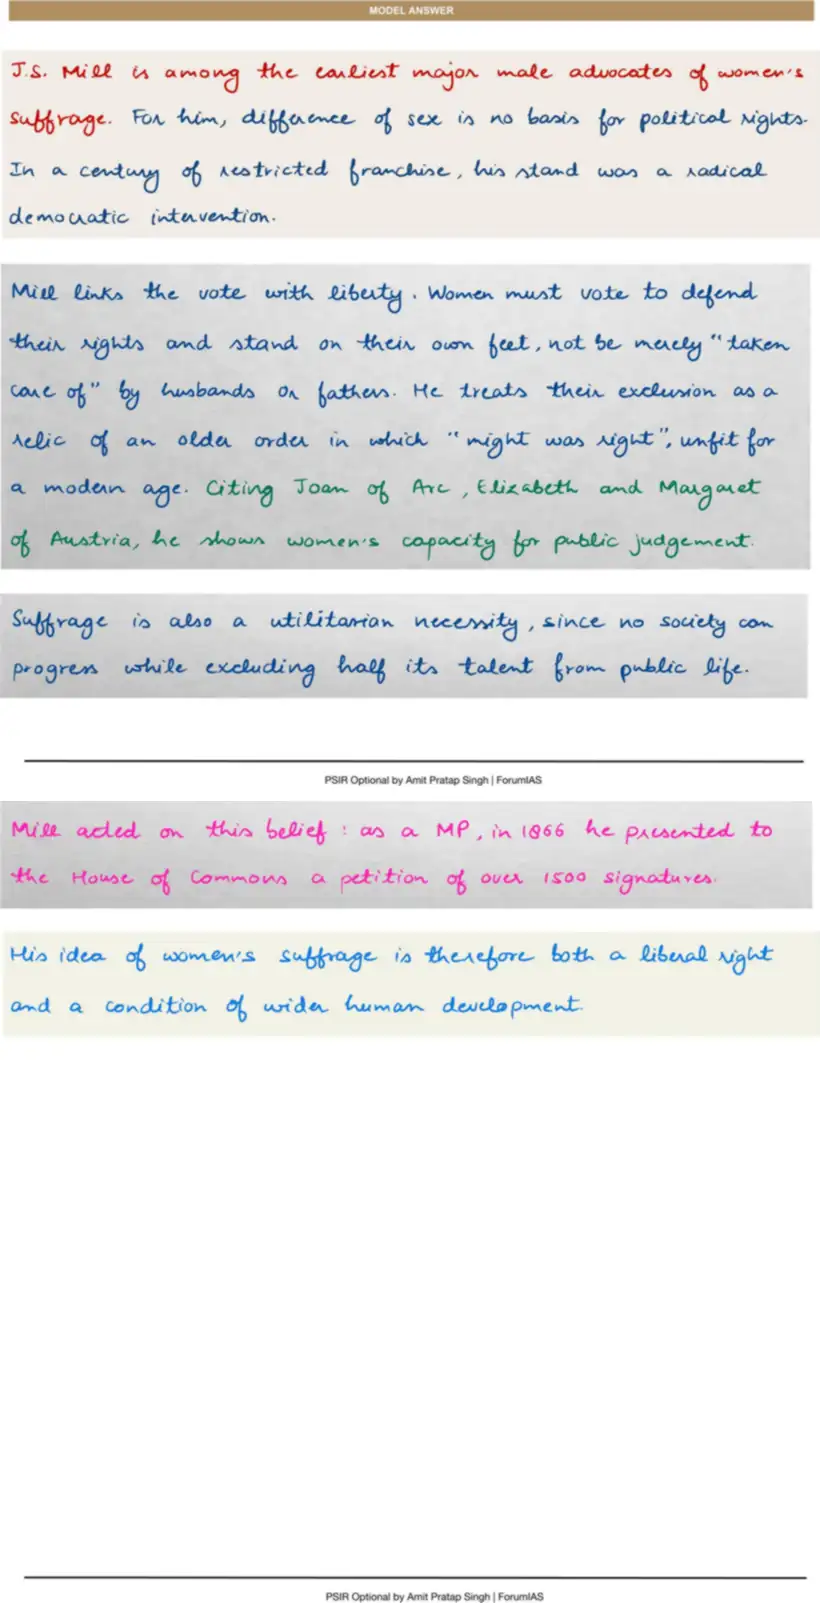 MODEL ANSWER
J.S. Mill is among the earliest major male advocates of women's
suffrage. For him, difference of sex is no basis for political rights.
In a century of restricted franchise, his stand was a radical
democratic intervention.
Mill links the vote with liberty. Women must vote to defend
their rights and stand on their own feet, not be merely "taken
care of" by husbands or fathers. He treats their exclusion as a
relic of an older order in which "might was right", unfit for
a modern age. Citing Joan of Arc, Elizabeth and Margaret
of Austria, he shows women's capacity for public judgement.
Suffrage is also a utilitarian necessity, since no society can
progress while excluding half its talent from public life.
PSIR Optional by Amit Pratap Singh | ForumIAS
Mill acted on this belief: as a MP, in 1866 he presented to
the House of Commons a petition of over 1500 signatures.
His idea of women's suffrage is therefore both a liberal right
and a condition of wider human development.
PSIR Optional by Amit Pratap Singh | ForumIAS